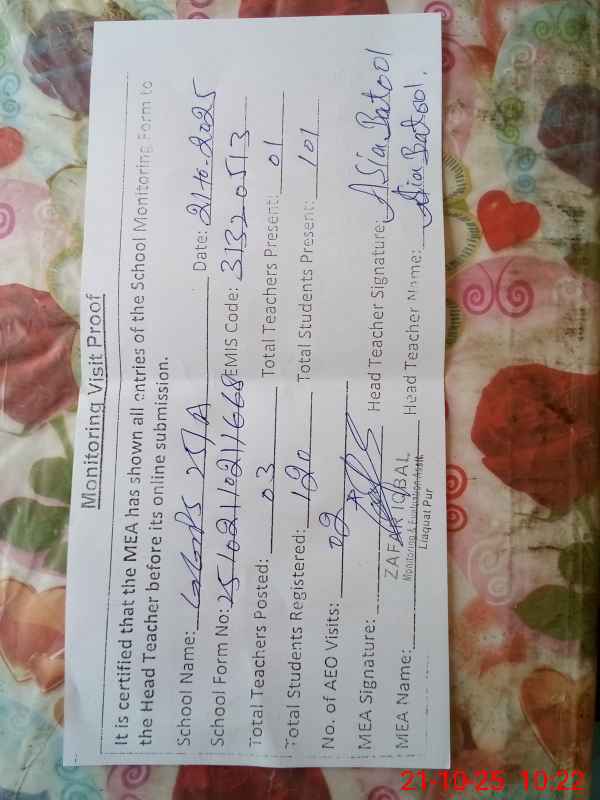 Monitoring Visit Proof
It is certified that the MEA has shown all entries of the School Monitoring Form to
the Head Teacher before its online submission.
School Name: GGPS 25/A Date: 21-10-2025
School Form No: 251021102117668 EMIS Code: 31320513
Total Teachers Posted: 03 Total Teachers Present: 01
Total Students Registered: 120 Total Students Present: 101
No. of AEO Visits: 02
MEA Signature: Head Teacher Signature: Asia Batool
MEA Name: ZAFAR IQBAL Head Teacher Name: Asia Batool.
Monitoring & Evaluation Asstt.
Liaquat Pur
21-10-25 10:22